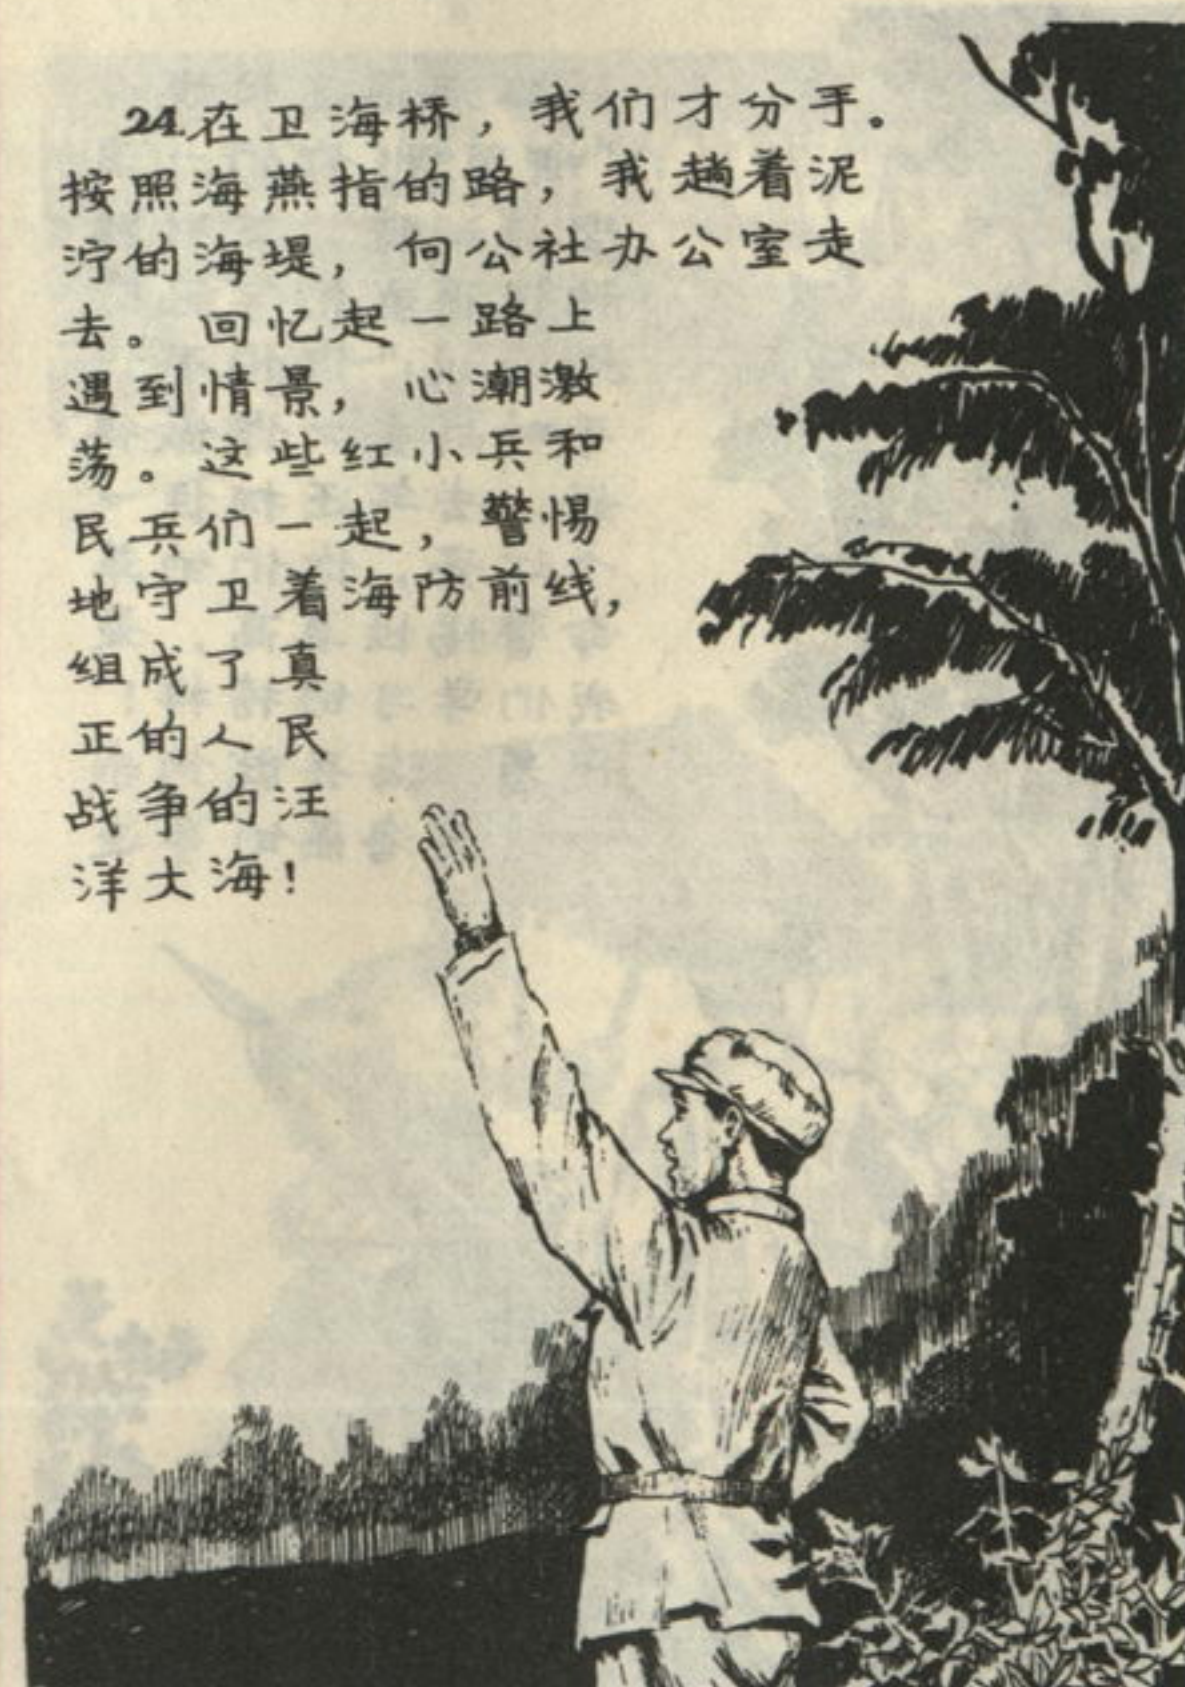 24.在卫海桥，我们才分手。
按照海燕指的路，我趟着泥
泞的海堤，向公社办公室走
去。回忆起一路上
遇到情景，心潮激
荡。这些红小兵和
民兵们一起，警惕
地守卫着海防前线，
组成了真
正的人民
战争的汪
洋大海！